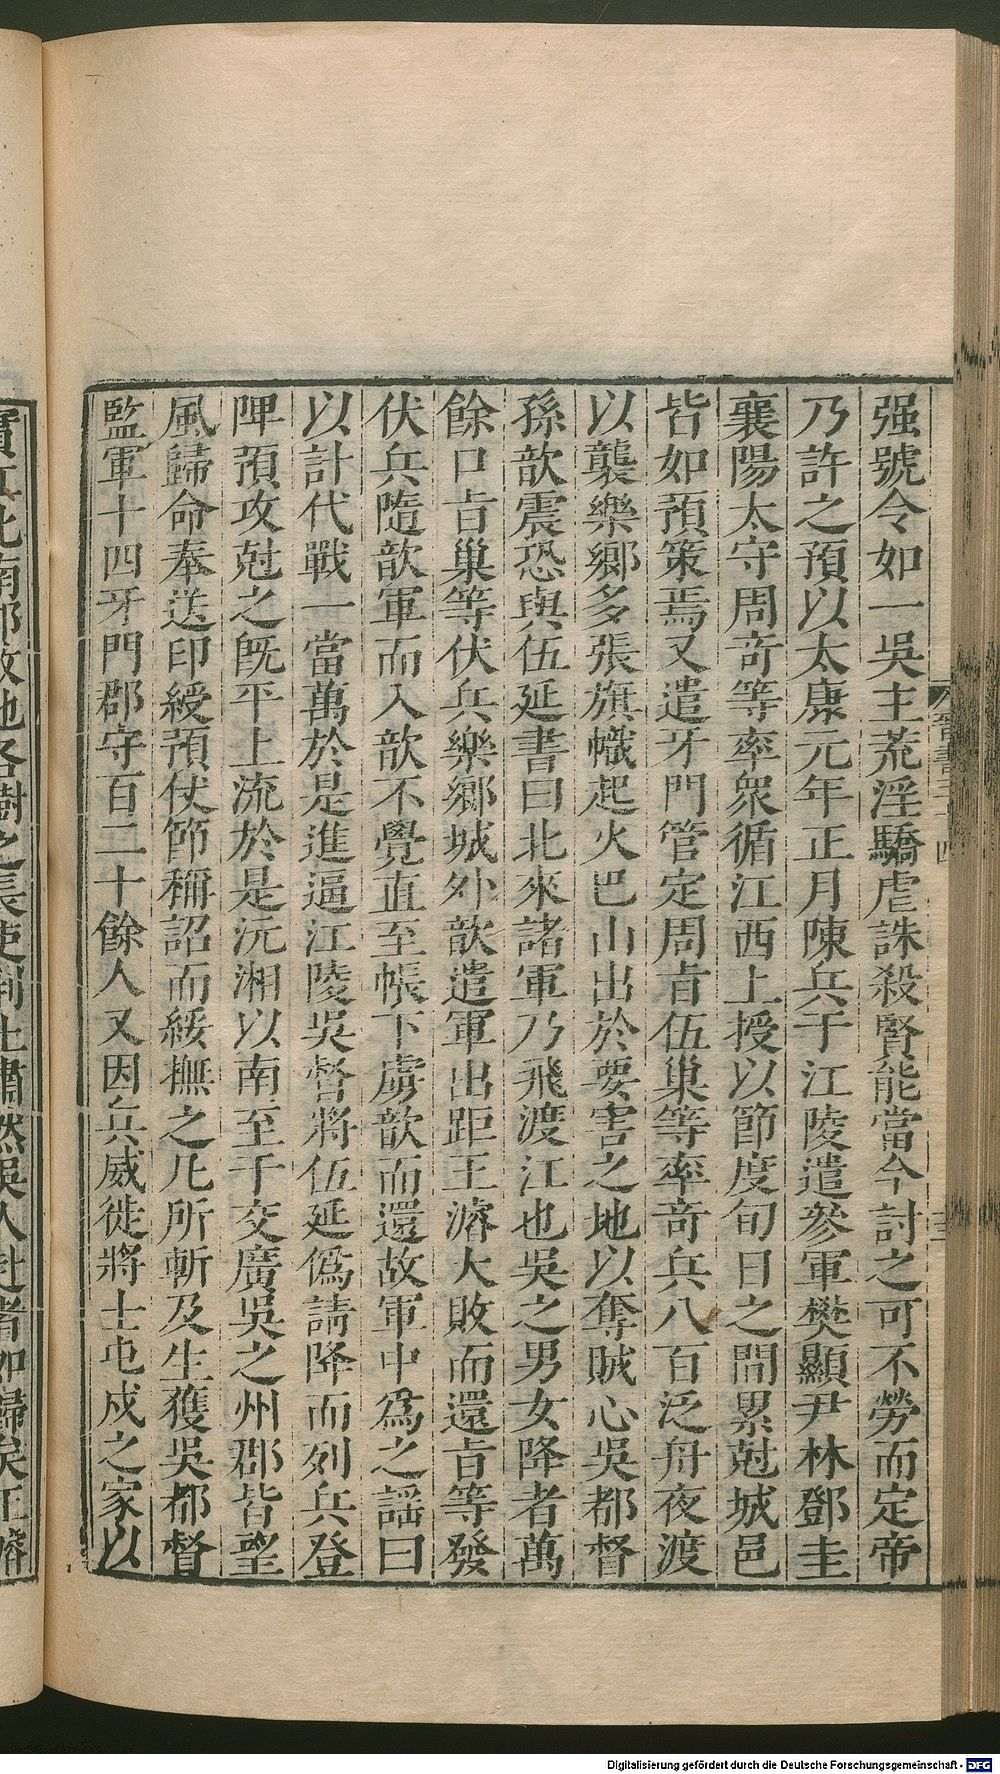 强號令如一吳主荒淫驕虐誅殺賢能當今討之可不勞而定帝
乃許之預以太康元年正月陳兵于江陵遣參軍樊顯尹林鄧圭
襄陽太守周竒等率衆循江西上授以節度旬日之間累尅城邑
皆如預策焉又遣牙門管定周旨伍巢等率竒兵八百泛舟夜渡
以襲樂鄉多張旗幟起火巴山出於要害之地以奪賊心吳都督
孫歆震恐與伍延書曰北來諸軍乃飛渡江也吳之男女降者萬
餘口旨巢等伏兵樂鄉城外歆遣軍出距王濬大敗而還旨等發
伏兵隨歆軍而入歆不覺直至帳下虜歆而還故軍中爲之謡曰
以計代戰一當萬於是進逼江陵吳督將伍延僞請降而列兵登
陴預攻尅之旣平上流於是沅湘以南至于交廣吳之州郡皆望
風歸命奉送印綬預仗節稱詔而綏撫之凡所斬及生獲吳都督
監軍十四牙門郡守百二十餘人又因兵威徙將士屯戍之家以
Digitalisierung gefördert durch die Deutsche Forschungsgemeinschaft - DFG